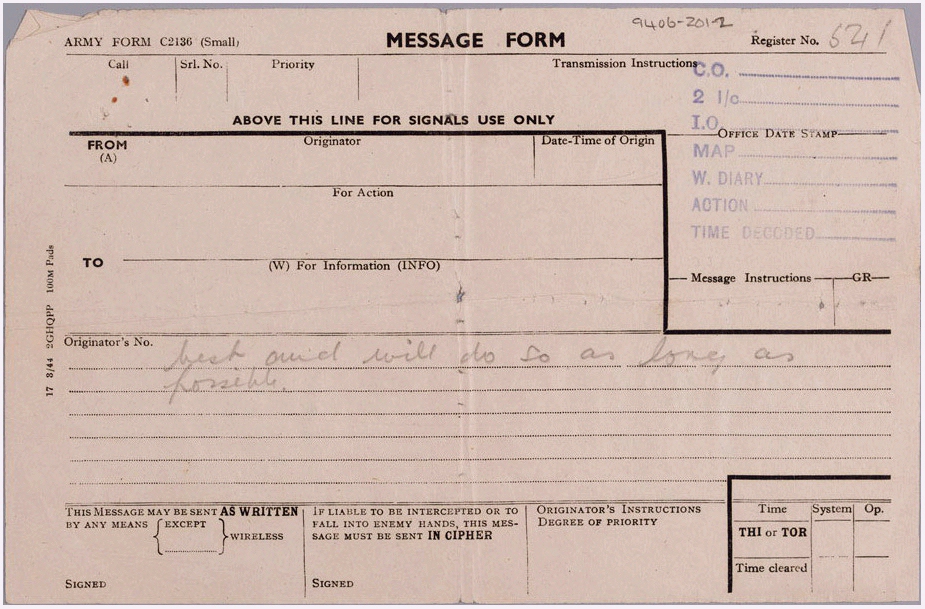 9406-201-2
ARMY FORM C2136 (Small)
MESSAGE FORM
Register No. 521
Call
Srl. No.
Priority
Transmission Instructions
C.O.
2 I/c
I.O.
ABOVE THIS LINE FOR SIGNALS USE ONLY
OFFICE DATE STAMP
MAP
W. DIARY
ACTION
TIME DECODED
FROM
(A)
Originator
Date-Time of Origin
For Action
TO
(W) For Information (INFO)
Message Instructions
GR
17 3/44 2GHQPP 100M Pads
Originator's No.
best and will do so as long as
possible.
THIS MESSAGE MAY BE SENT AS WRITTEN
BY ANY MEANS
EXCEPT
WIRELESS
SIGNED
IF LIABLE TO BE INTERCEPTED OR TO
FALL INTO ENEMY HANDS, THIS MES-
SAGE MUST BE SENT IN CIPHER
SIGNED
ORIGINATOR'S INSTRUCTIONS
DEGREE OF PRIORITY
Time
System
Op.
THI or TOR
Time cleared